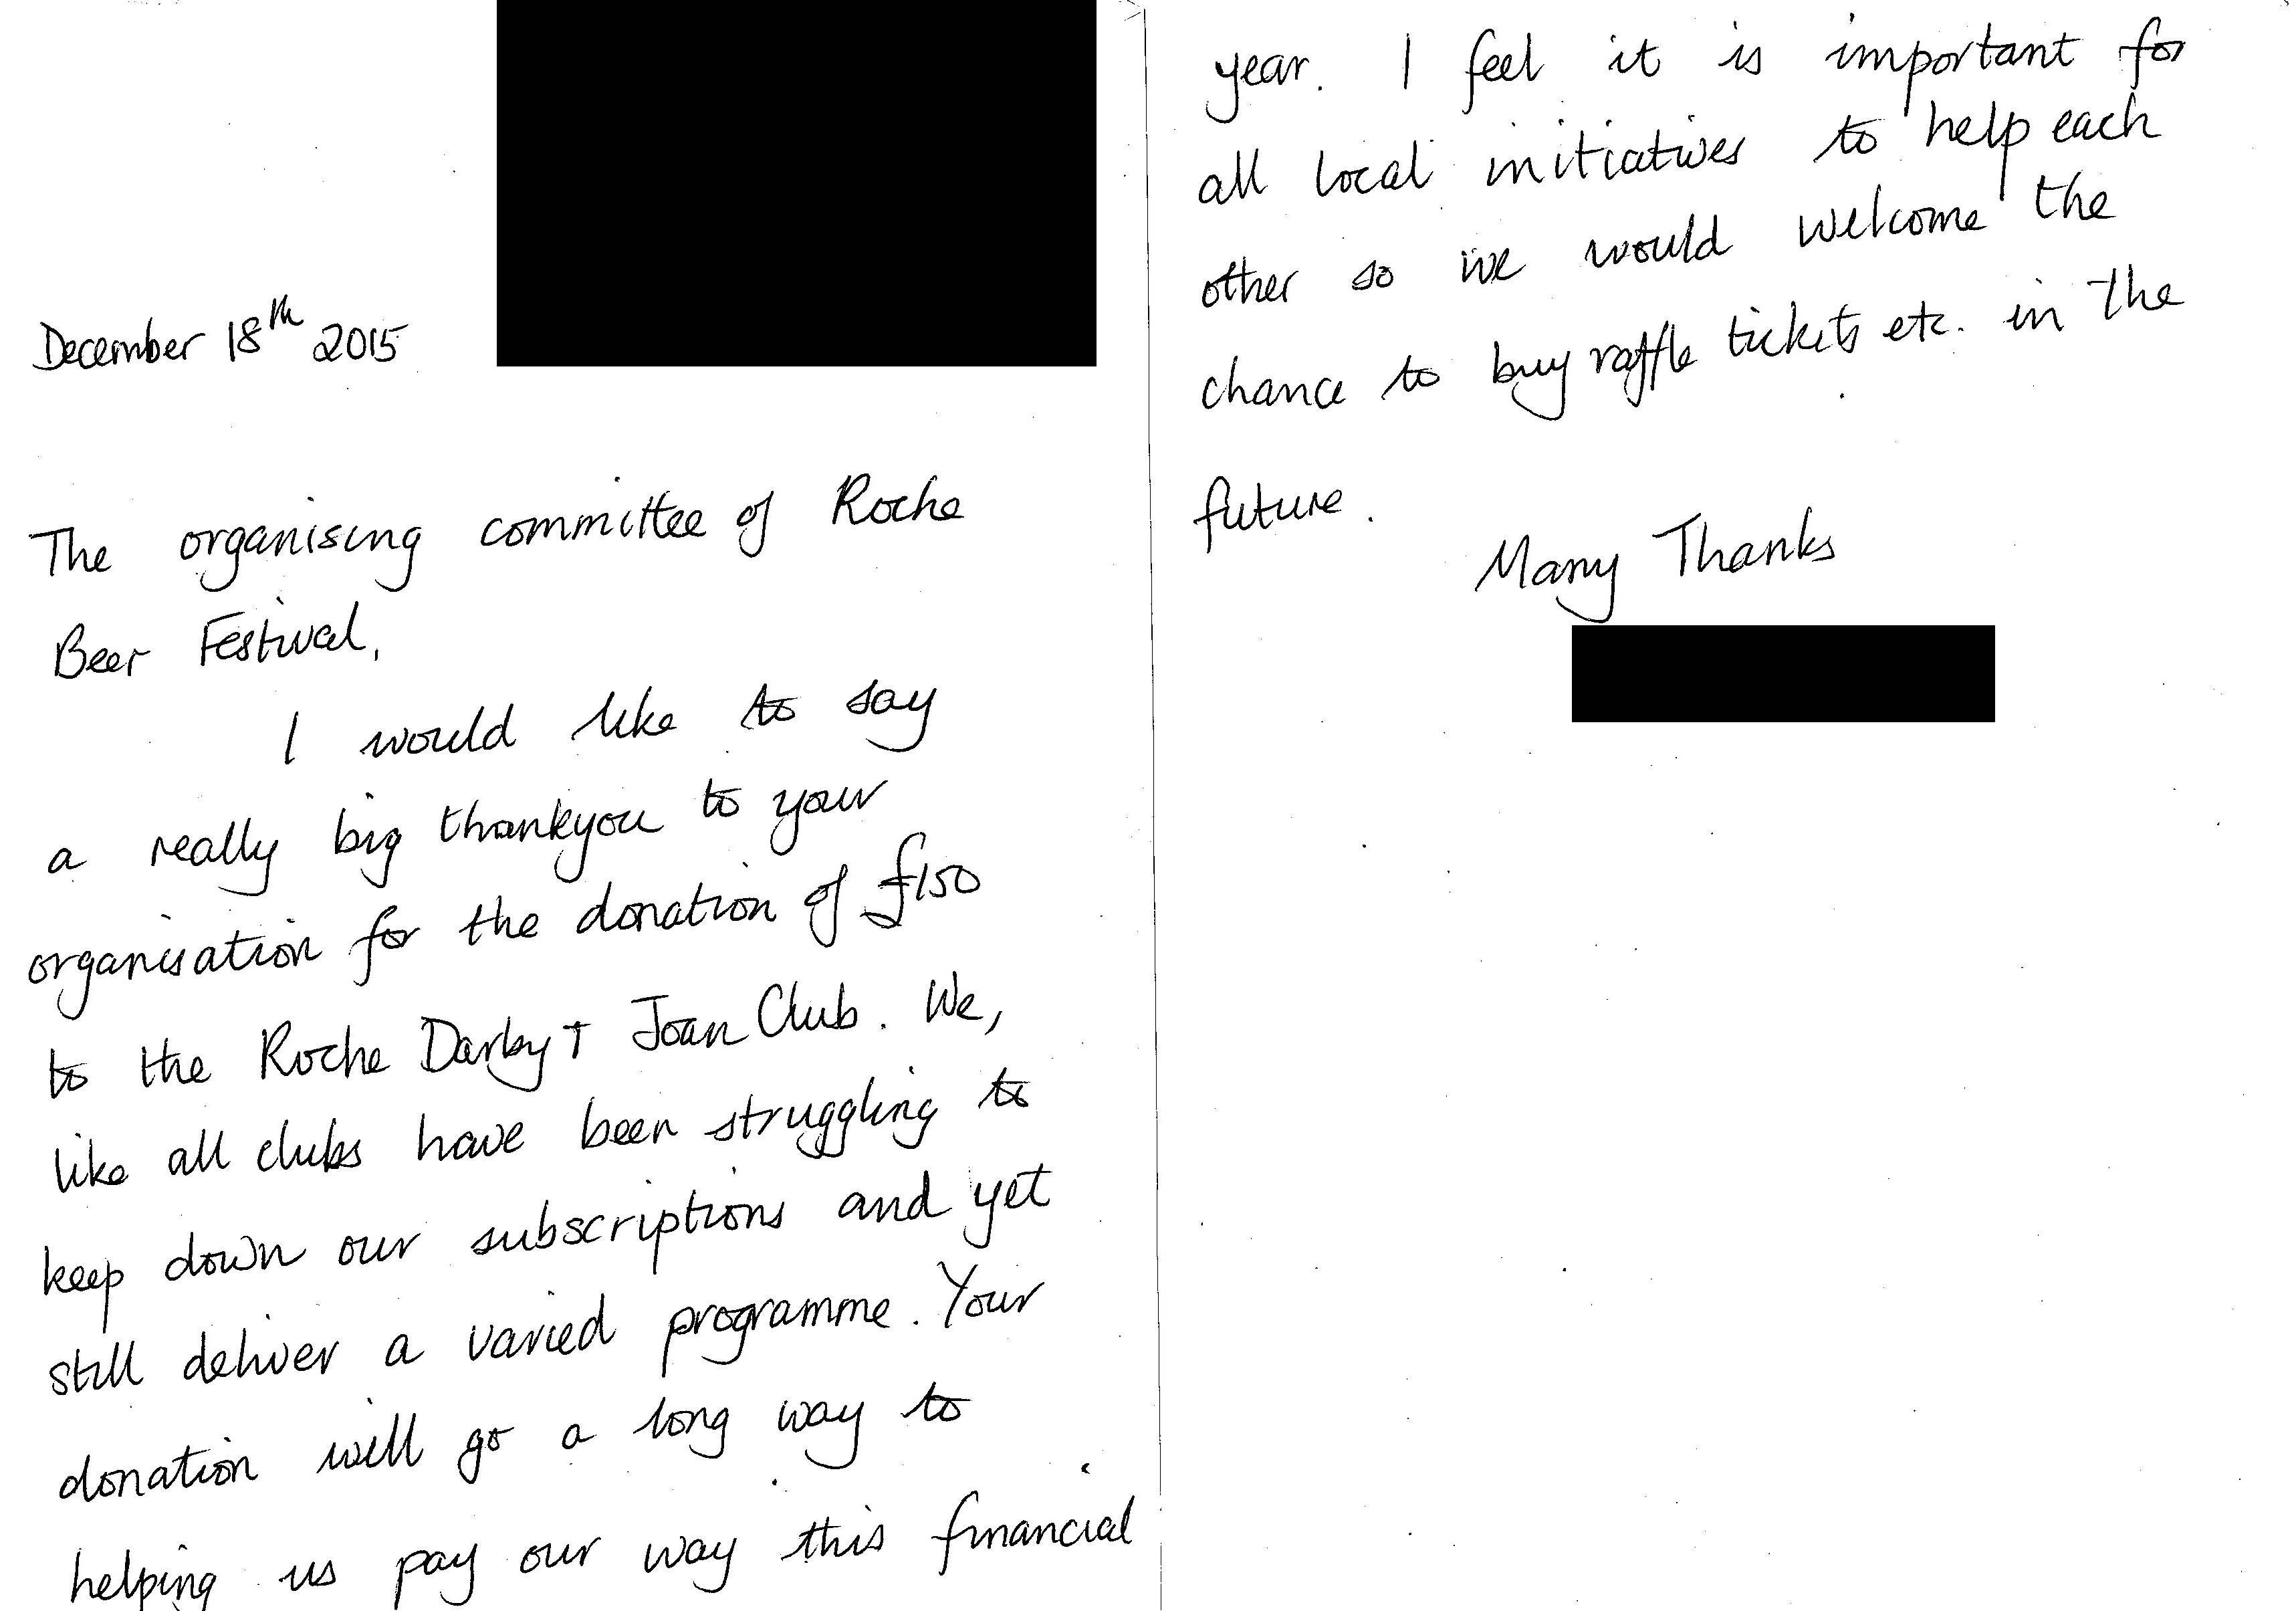 December 18th 2015
The organising committee of Roche
Beer Festival,
I would like to say
a really big thankyou to your
organisation for the donation of £150
to the Roche Darby + Joan Club. We,
like all clubs have been struggling to
keep down our subscriptions and yet
still deliver a varied programme. Your
donation will go a long way to
helping us pay our way this financial
year. I feel it is important for
all local initiatives to help each
other so we would welcome the
chance to buy raffle tickets etc. in the
future.
Many Thanks